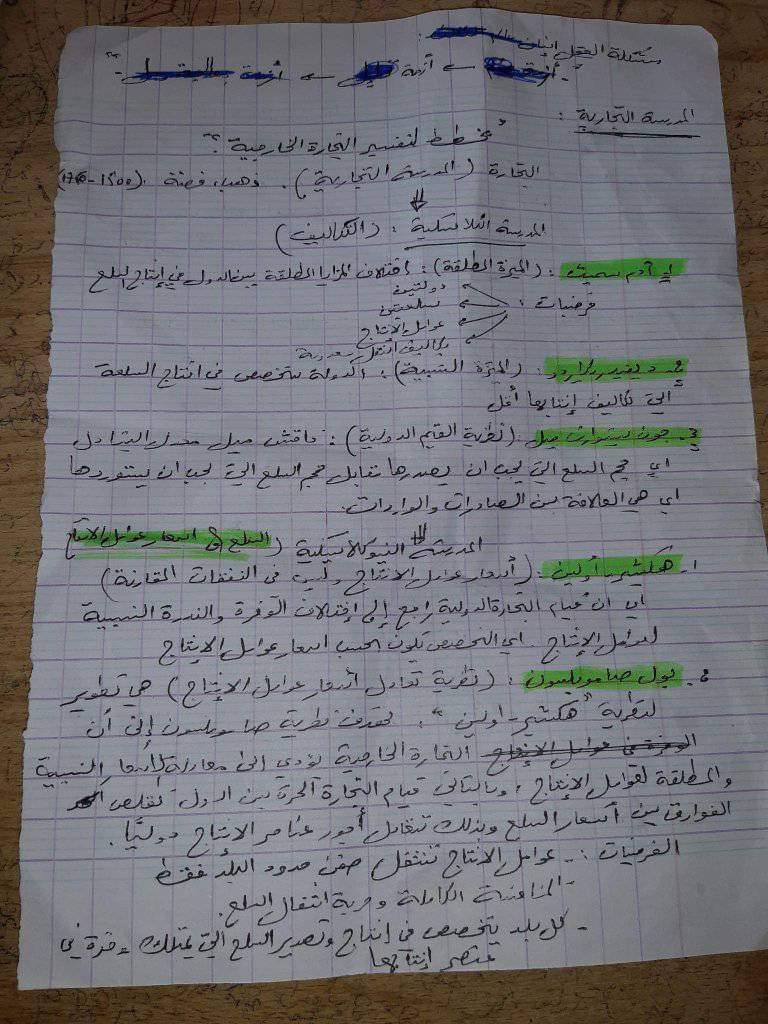 مشكلة
أزمة ← أزمة
المدرسة التجارية :
"مخطط لتفسير التجارة الخارجية"
التجارة (المدرسة التجارية). ذهب، فضة (1500-
المدرسة الكلاسيكية : (التكاليف)
1- آدم سميث : (الميزة المطلقة) : اختلاف المزايا المطلقة بين الدول في إنتاج السلع
فرضيات :
دولتين
سلعتين
عوامل الإنتاج
تكاليف النقل معدومة
2- ديفيد ريكاردو : (الميزة النسبية) : الدولة تتخصص في إنتاج السلعة
التي تكاليف إنتاجها أقل
3- جون ستيوارت ميل : (نظرية القيم الدولية) : ناقش ميل معدل التبادل
أي حجم السلع التي يجب ان يصدرها تقابل حجم السلع التي يجب ان يستوردها
اي هي العلاقة بين الصادرات والواردات.
المدرسة النيوكلاسيكية (السلع في اسعار عوامل الانتاج
1- هكشر-أولين : (أسعار عوامل الانتاج وليس في النفقات المقارنة)
اي ان قيام التجارة الدولية راجع إلى إختلاف الوفرة والندرة النسبية
لعوامل الإنتاج. اي التخصص يكون بحسب اسعار عوامل الإنتاج
2- بول صامويلسون : (نظرية تعادل اسعار عوامل الإنتاج) هي تطوير
لنظرية "هكشر-أولين". تهدف نظرية صامويلسون إلى أن
التجارة الخارجية تؤدي الى معادلة الأسعار النسبية
والمطلقة لعوامل الإنتاج، وبالتالي قيام التجارة الحرة بين الدول تقلص
الفوارق بين أسعار السلع وبذلك تتعادل أجور عناصر الإنتاج دوليًا.
الفرضيات : - عوامل الانتاج تنتقل ضمن حدود البلد فقط
- المنافسة الكاملة وحرية انتقال السلع.
- كل بلد يتخصص في إنتاج وتصدير السلع التي يمتلك وفرة في
عنصر إنتاجها